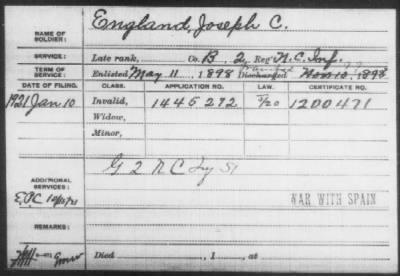 NAME OF SOLDIER: England, Joseph C.
SERVICE: Late rank, Co. B, 2 Reg't N.C. Inf.
TERM OF SERVICE: Enlisted May 11, 1898 Discharged Nov. 10, 1898
DATE OF FILING. CLASS. APPLICATION NO. LAW. CERTIFICATE NO.
1921 Jan 10 Invalid, 1445292 5/20 1200471
Widow,
Minor,
G 2 N C Inf
ADDITIONAL SERVICES:
E.P.C. WAR WITH SPAIN
REMARKS:
Died , 1 , at